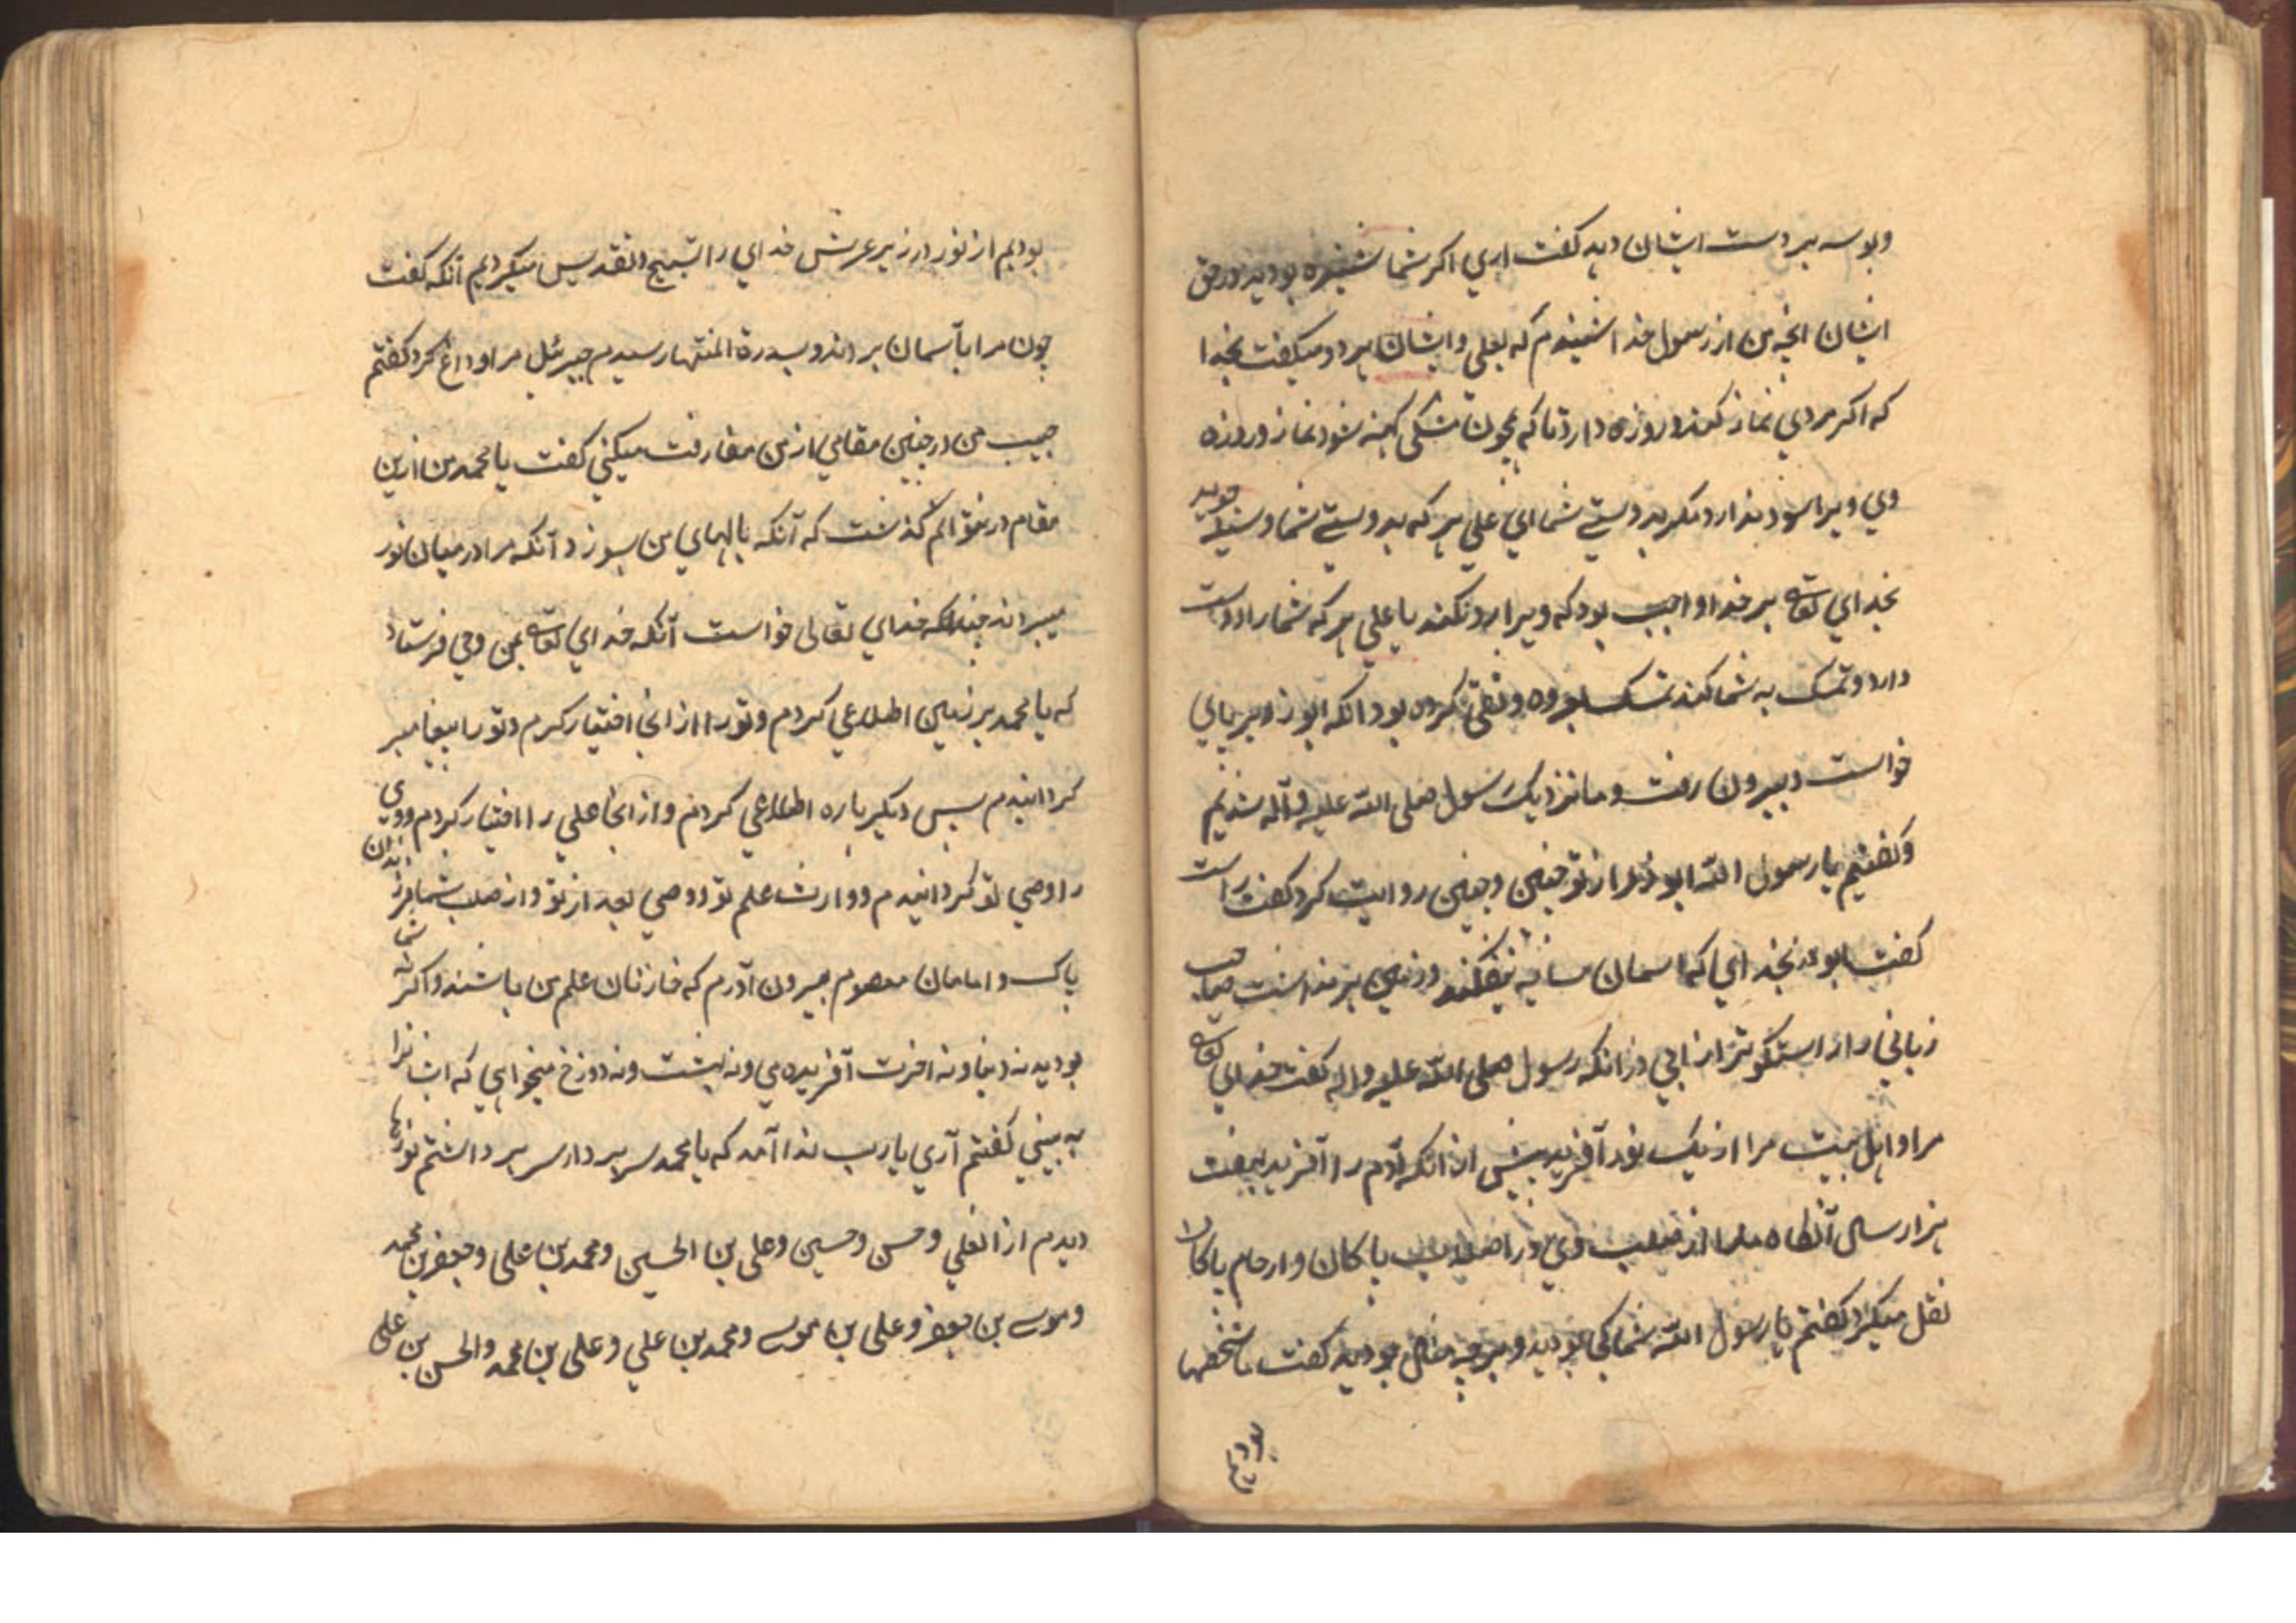 وبوسه بر دست ایشان دهد کفت اری اکر شما شنیده بودید در حق
ایشان انچه من از رسول خدا شنیدم که بعلی و ایشان هر دو میکفت بخدا
که اکر مردی نماز کند و روزه دارد تا که همچون مشکی کهنه شود نماز و روزه
وی ویرا سود ندارد مکر بدوستی شما ای علی هر که بدوستی شما وسیله جوید
بخدای تعالی بر خدا واجب بود که ویرا رد نکند یا علی هر که شما را دوست
دارد و تمسک به شما کند تمسک بعروه وثقی کرده بود انکه ابوذر بر پای
خواست و بیرون رفت و ما نزدیک رسول صلی الله علیه و آله شدیم
و کفتیم یا رسول الله ابوذر از تو چنین و چنین روایت کرد کفت راست
کفت ابوذر بخدای که اسمان سایه نیفکند و زمین بر نداشت صاحب
زبانی را راستکوتر از ابی ذر انکه رسول صلی الله علیه و اله کفت خدای تعالی
مرا و اهل بیت مرا از یک نور آفرید پیش از انکه آدم را آفریند بهفت
هزار سال آنکاه ما را از صلب وی در اصلاب پاکان و ارحام پاکان
نقل میکرد کفتم یا رسول الله شما کجا بودید و بر چه مثال بودید کفت ما شخصها
بودیم
بودیم از نور در زیر عرش خدای را تسبیح و تقدیس میکردیم آنکه کفت
چون مرا بآسمان بردند و بسدرة المنتها رسیدم جبرئل مرا وداغ کرد کفتم
حبیب من در چنین مقامی از من مفارقت میکنی کفت یا محمد من ازین
مقام در نتوانم کذشت که آنکه بالهای من بسوزد آنکه مرا در میان نور
میبردند چندانکه خدای تعالی خواست آنکه خدای تعالی بمن وحی فرستاد
که یا محمد بر زمین اطلاعی کردم و تو را از انجا اختیار کردم و تو را پیغامبر
کردانیدم پس دیکر باره اطلاعی کردم و از انجا علی را اختیار کردم و وی
را وصی تو کردانیدم و وارث علم تو و وصی بعد از تو و از صلب شما فرزندان
پاک و امامان معصوم بیرون آورم که خازنان علم من باشند و اکر نه شما
بودید نه دنیا و نه اخرت آفریدمی و نه بهشت و نه دوزخ میخواهی که ایشانرا
به بینی کفتم آری یا رب ندا آمد که یا محمد سر بردار سر برداشتم نورها
دیدم از ان علی و حسن و حسین و علی بن الحسین و محمد بن علی و جعفر بن محمد
و موسی بن جعفر و علی بن موسی و محمد بن علی و علی بن محمد والحسن بن علی